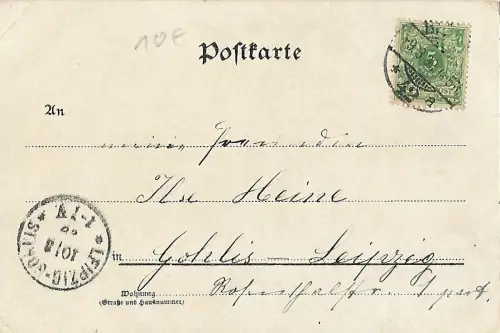 10 €
Postkarte
An
meine Freundin
Ilse Heine
in Gohlis-Leipzig
Wohnung
(Straße und Hausnummer)
1 part.
LEIPZIG-GOHLIS
10/8